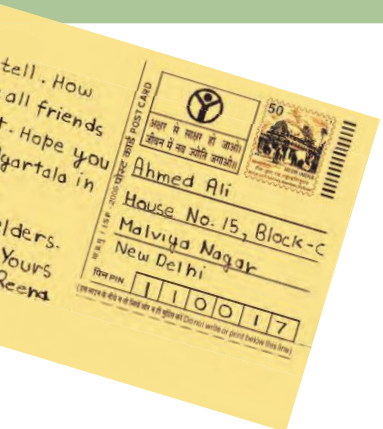 tell. How
all friends
t. Hope you
Agartala in
elders.
Yours
Reena
पोस्ट कार्ड POST CARD
50
अक्षर से साक्षर हो जाओ।
जीवन में नव ज्योति जगाओ॥
Ahmed Ali
House No. 15, Block-C
Malviya Nagar
New Delhi
पिन PIN 110017
(Do not write or print below this line)